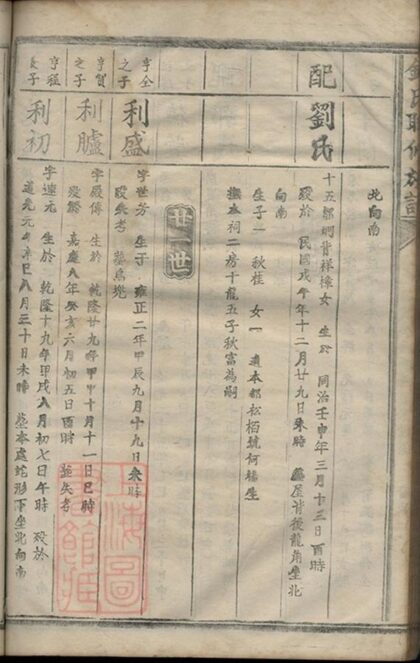 北向南
配
劉氏
十五都洞背祥樟女 生於 同治壬申年三月十三日酉時
歿於 民國戊午年十二月廿九日未時 葬屋背後龍角坐北
向南
生子一 秋桂 女一 適本都松栢號何橋生
撫本祠二房十龍五子秋富為嗣
廿一世
亨全
之子
利盛
字世芳 生于 雍正二年甲辰九月十九日未時
歿失考 葬烏兠
亨賀
之子
利臚
字殿傳 生於 乾隆廿九年甲申十月十一日巳時
歿於 嘉慶八年癸亥六月初五日酉時 葬失考
亨程
長子
利初
字連元 生於 乾隆十九年甲戌八月初七日午時 歿於
道光元年辛巳八月三十日未時 葬本處蛇形下坐北向南
上海圖
書館藏